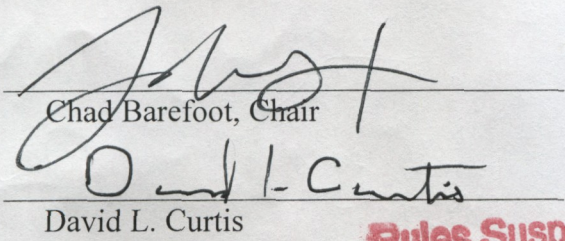 Chad Barefoot, Chair
David L. Curtis
David L. Curtis
Rules Susp